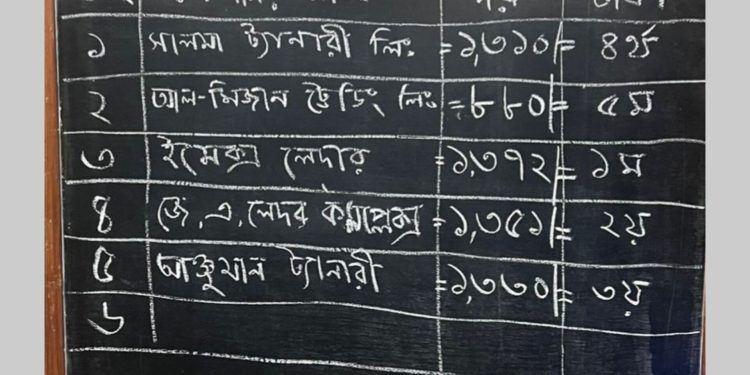 ১ সালমা ট্যানারী লিঃ =১,৩১০/= ৪র্থ
২ আল-মিজান ট্রেডিং লিঃ =৮৮০/= ৫ম
৩ ইমেক্স লেদার =১,৩৭২/= ১ম
৪ জে, এ, লেদার কমপ্লেক্স =১,৩৫১/= ২য়
৫ আঞ্জুমান ট্যানারী =১,৩৩০/= ৩য়
৬